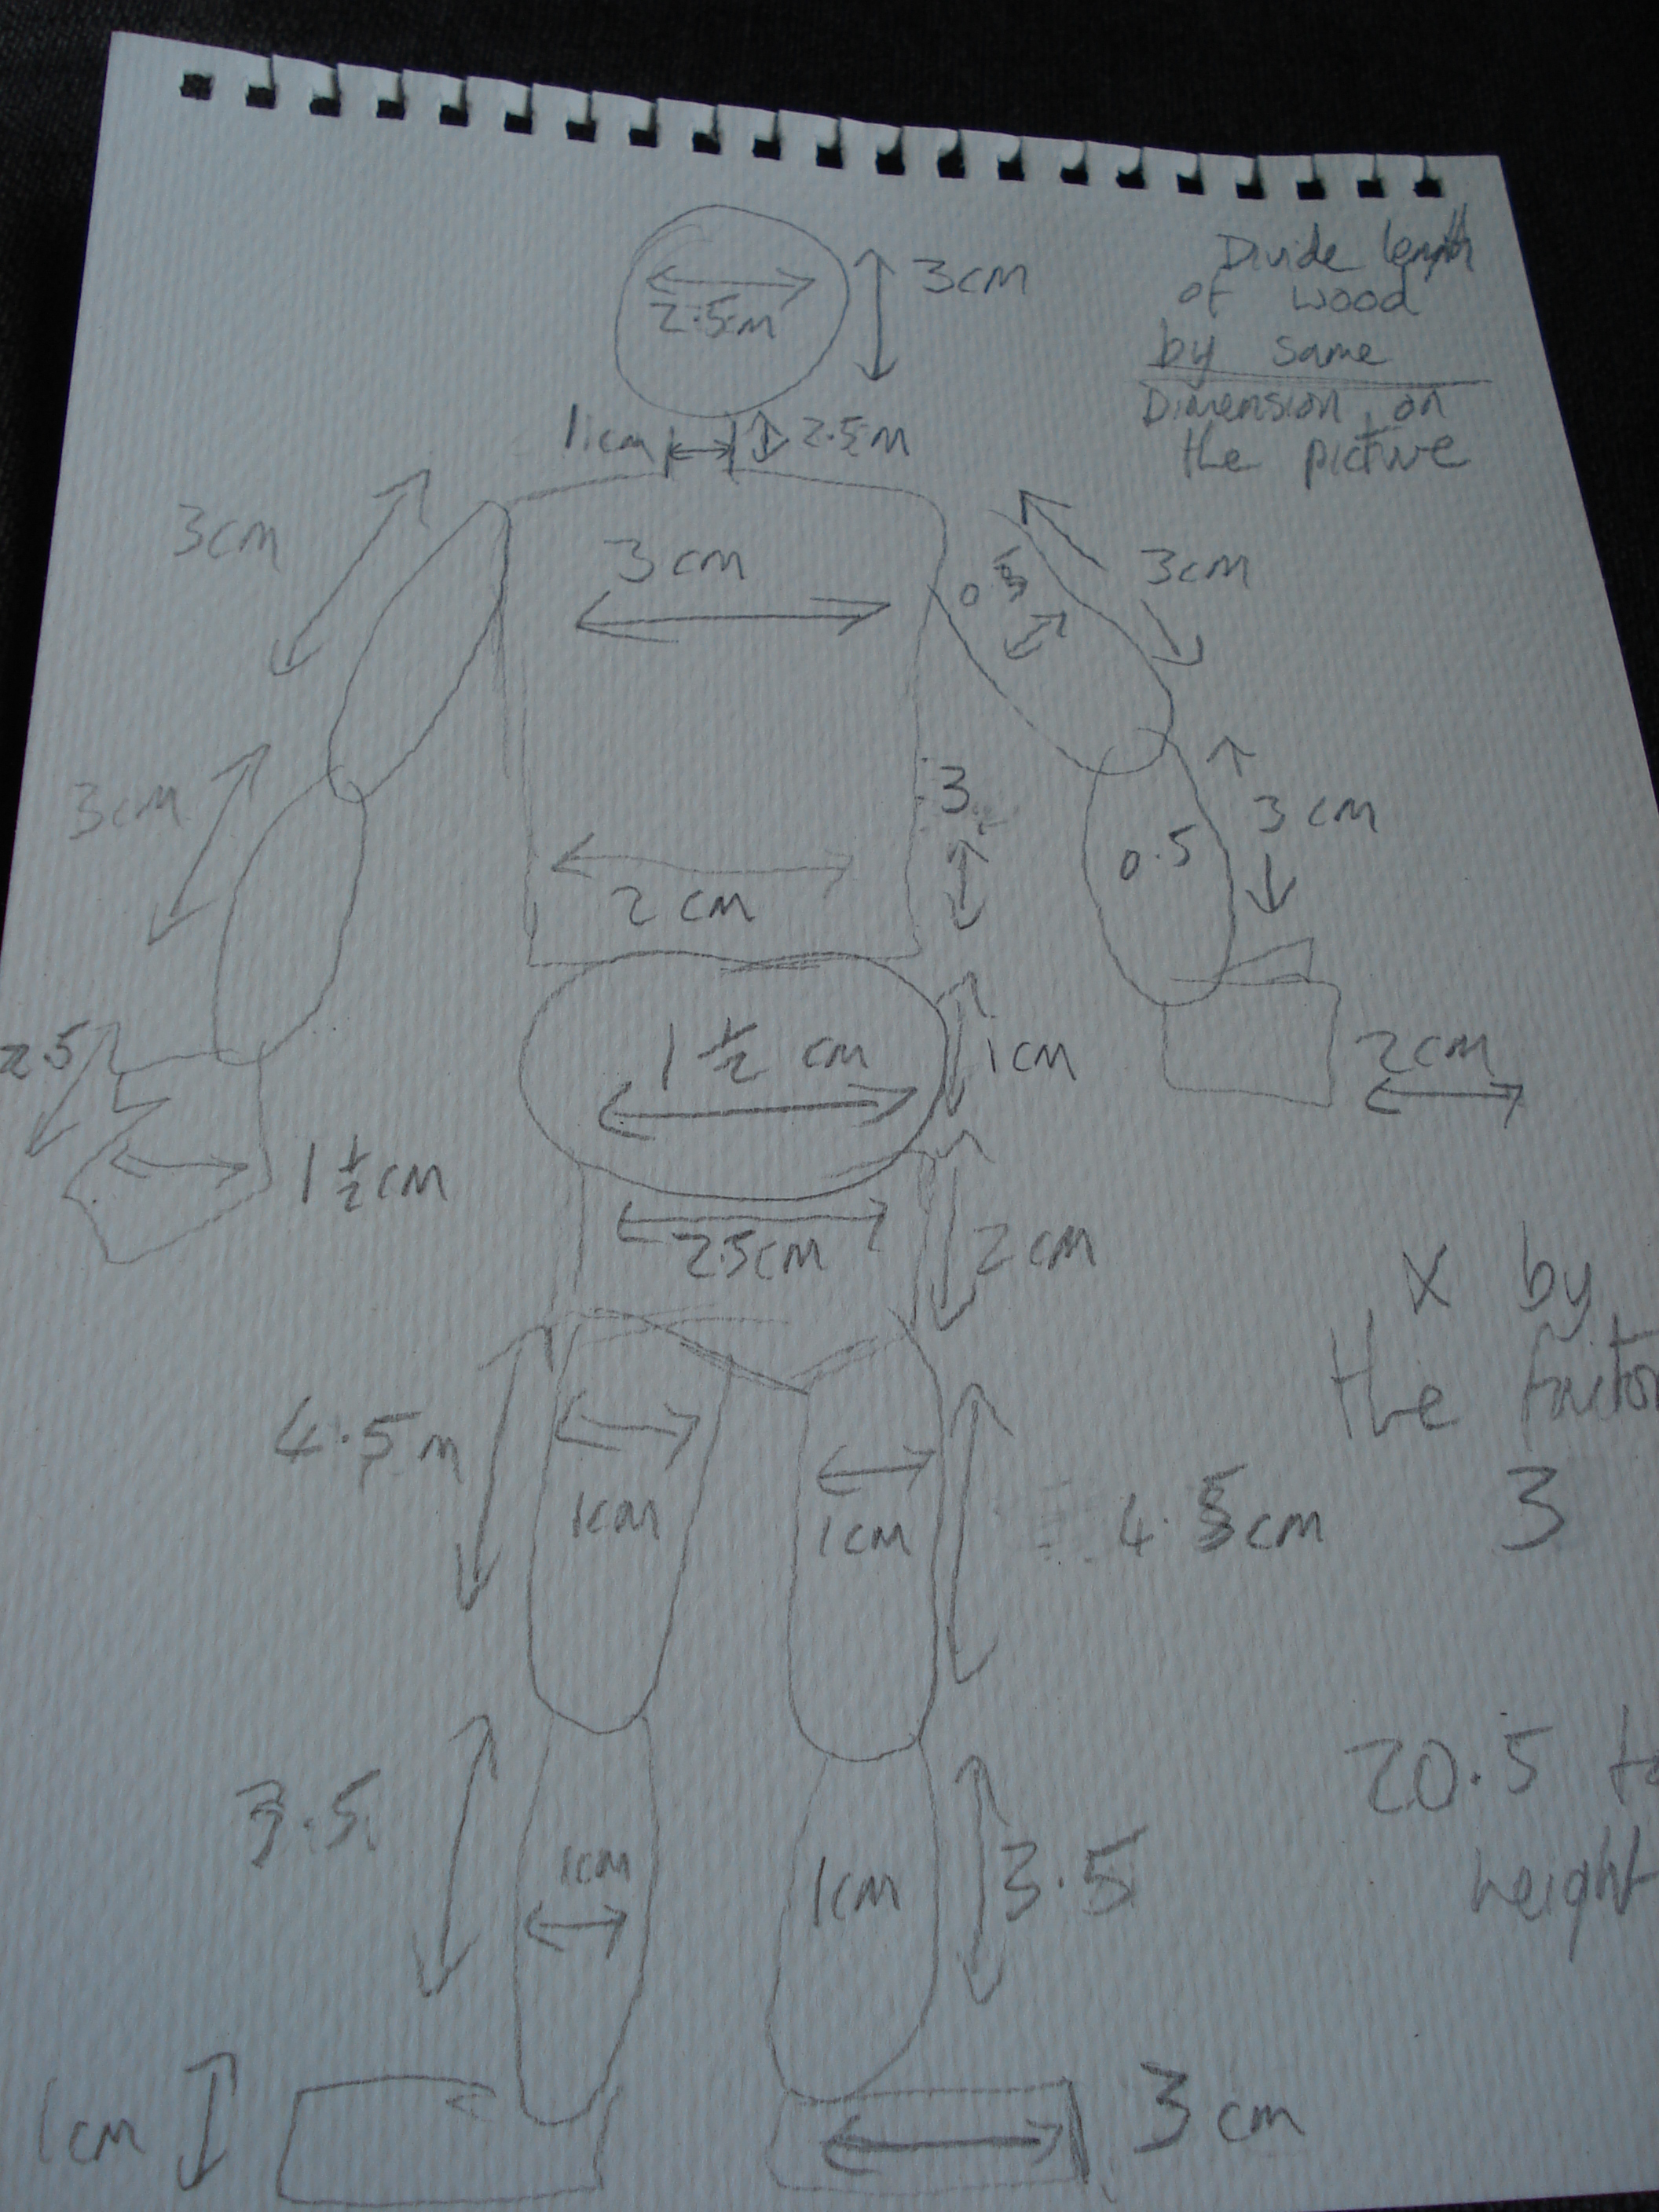 Divide length
of wood
by same
Dimension on
the picture
3cm
2.5m
1cm
2.5m
3cm
3cm
0.5
3cm
3cm
3
3cm
0.5
2cm
2.5
1 1/2 cm
1cm
2cm
1 1/2 cm
2.5cm
2cm
x by
the factor
3
4.5m
1cm
1cm
4.5cm
20.5
height
3.5
1cm
1cm
3.5
1cm
3cm